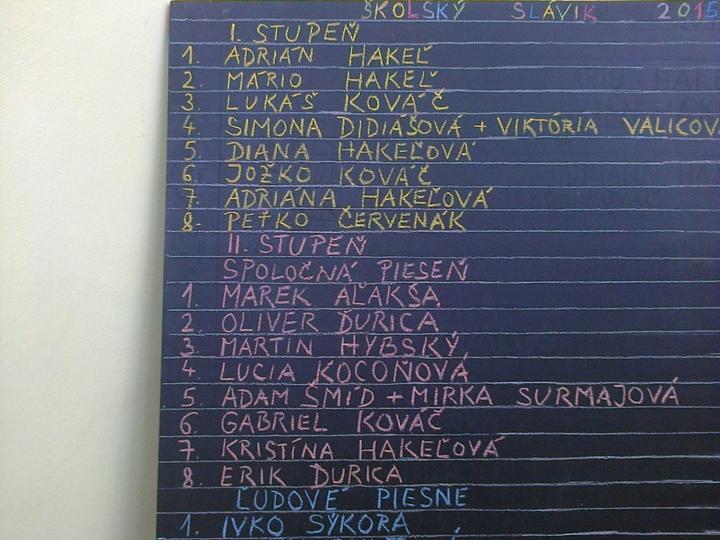 ŠKOLSKÝ SLÁVIK 2015
I. STUPEŇ
1. ADRIÁN HAKEĽ
2. MÁRIO HAKEĽ
3. LUKÁŠ KOVÁČ
4. SIMONA DIDIÁŠOVÁ + VIKTÓRIA VALICOV
5. DIANA HAKEĽOVÁ
6. JOŽKO KOVÁČ
7. ADRIÁNA HAKEĽOVÁ
8. PEŤKO ČERVENÁK
II. STUPEŇ
SPOLOČNÁ PIESEŇ
1. MAREK ALAKŠA
2. OLIVER ĎURICA
3. MARTIN HYBSKÝ
4. LUCIA KOCOŇOVÁ
5. ADAM ŠMÍD + MIRKA SURMAJOVÁ
6. GABRIEL KOVÁČ
7. KRISTÍNA HAKEĽOVÁ
8. ERIK ĎURICA
ĽUDOVÉ PIESNE
1. IVKO SÝKORA